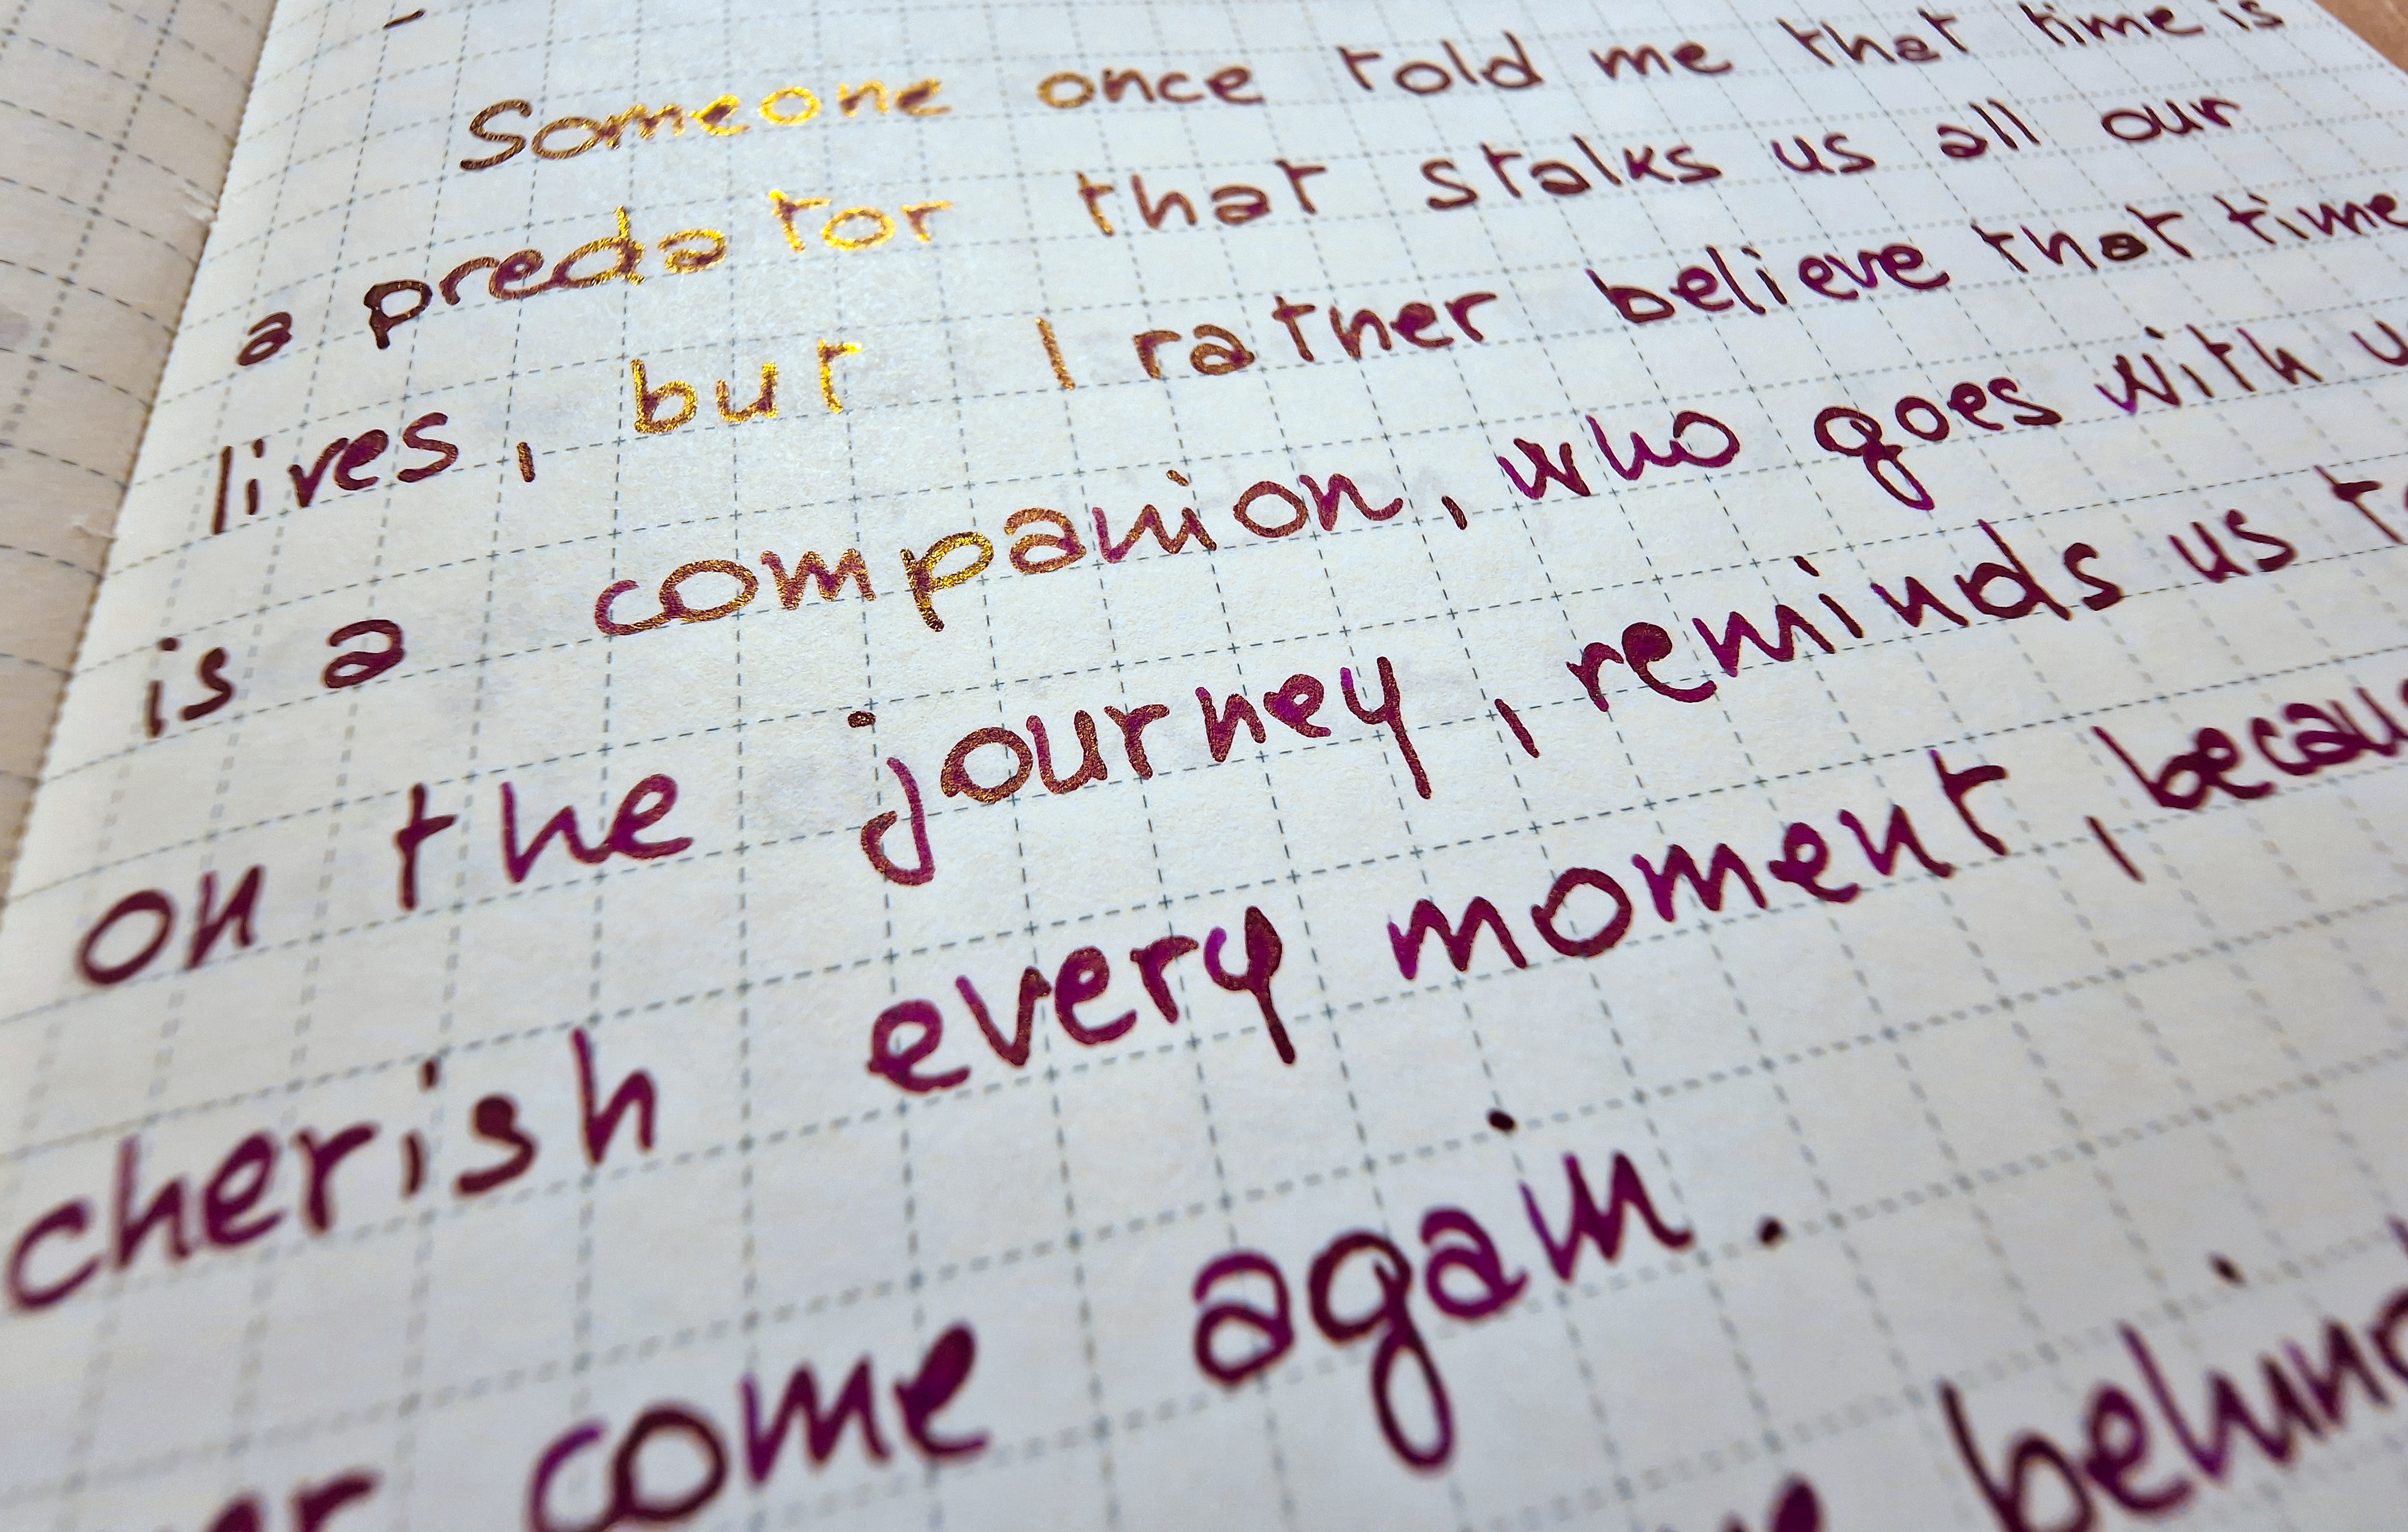 Someone once told me that time is
a predator that stalks us all our
lives, but I rather believe that time
is a companion, who goes with u
on the journey, reminds us to
cherish every moment, becau
er come again.
behind